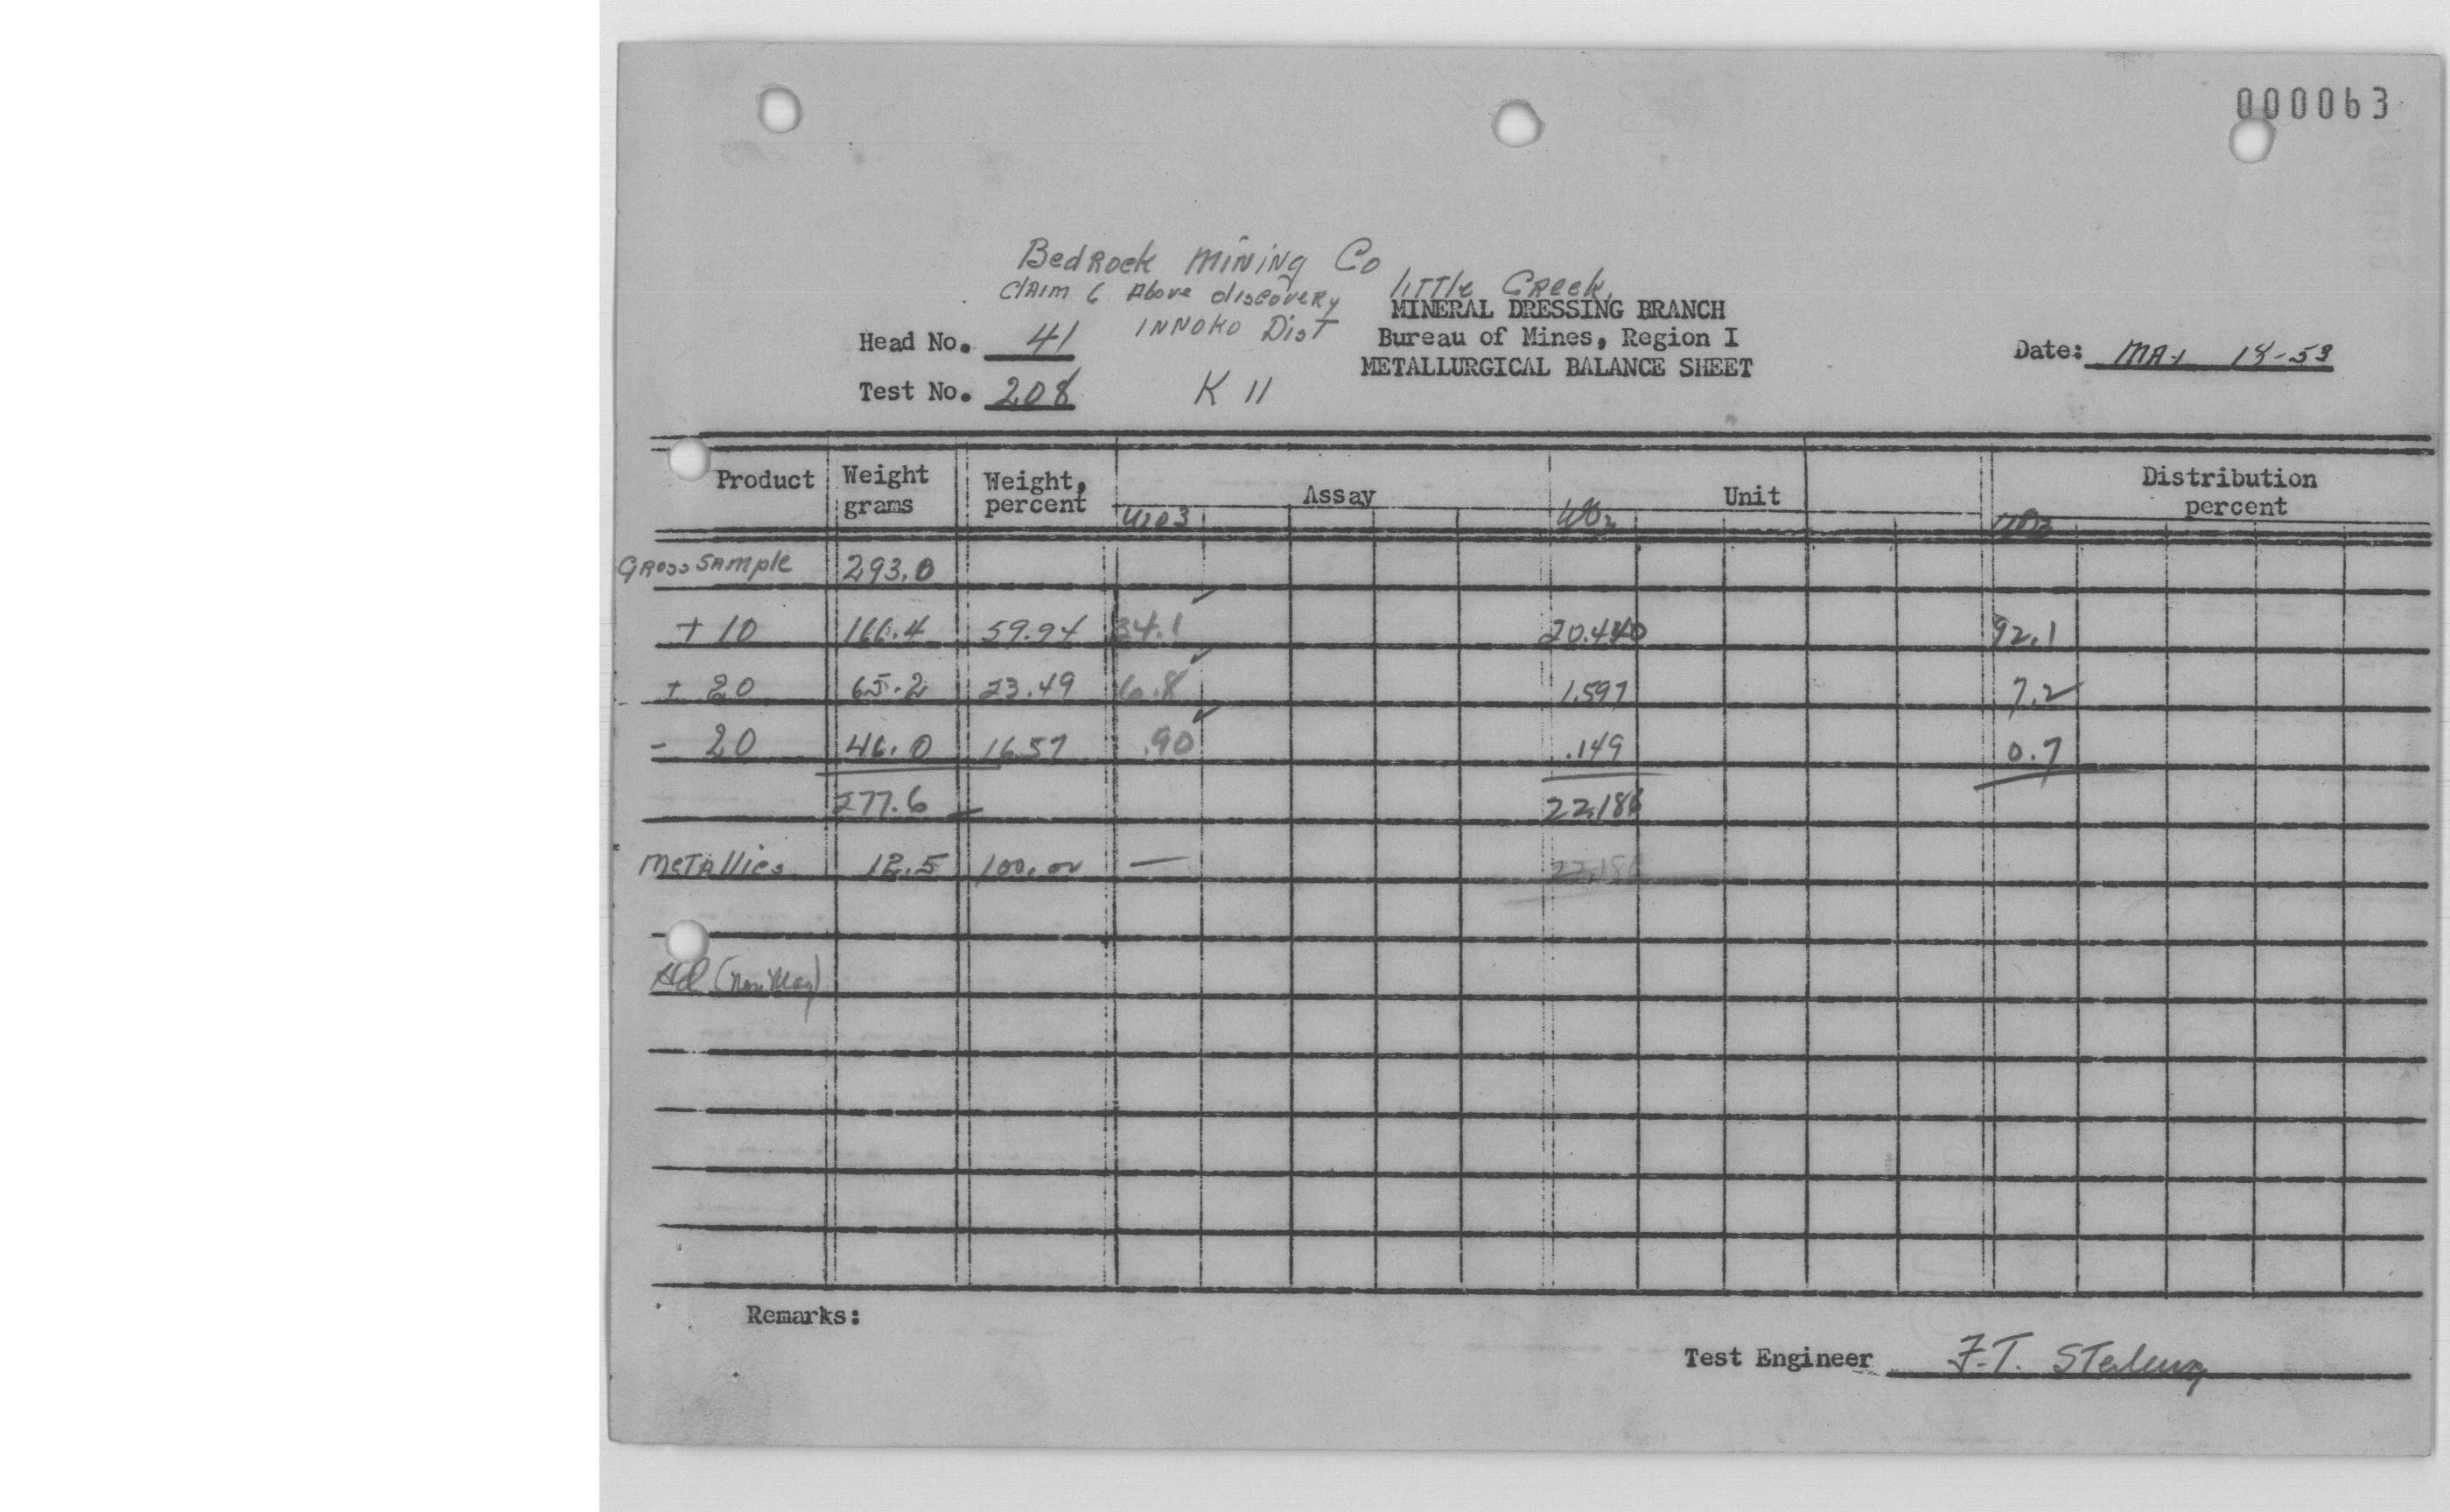 000063
BedRock Mining Co
Claim 6 Above discovery Little Creek,
MINERAL DRESSING BRANCH
INNOKO Dist
Head No. 41 Bureau of Mines, Region I
Date: MAY 18-53
METALLURGICAL BALANCE SHEET
Test No. 208 K 11
Product Weight grams Weight, percent Assay Unit Distribution percent
WO3 WO3 WO3
Gross Sample 293.0
+ 10 166.4 59.94 34.1 20.440 92.1
+ 20 65.2 23.49 6.8 1.597 7.2
- 20 46.0 16.57 .90 .149 0.7
277.6 22.186
Metallics 12.5 100.00 — 22.186
Hd (Non Mag)
Remarks:
Test Engineer F.T. Sterling